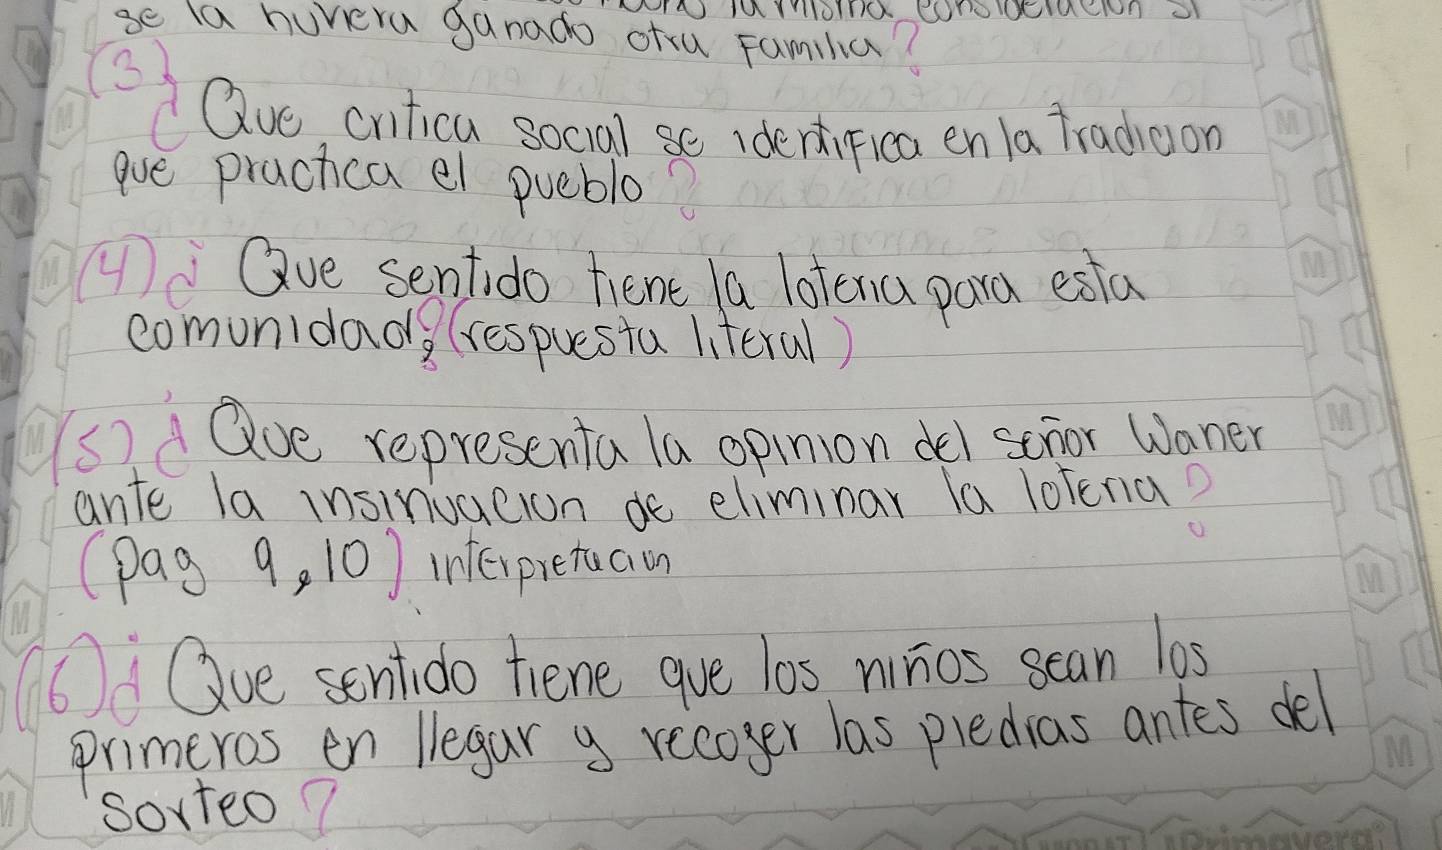 se la huviera ganado otra Familia?
(3)
¿Que critica social se identifica en la Tradicion
que practica el pueblo?
(4) ¿Que sentido tiene la loteria para esta
comunidad? (respuesta literal)
(5) ¿Que representa la opinion del señor Waner
ante la insinuacion de eliminar la loteria?
(pag 9, 10) interpretacion
(6) ¿Que sentido tiene que los niños sean los
primeros en llegar y recoger las piedras antes del
sorteo?
Primavera